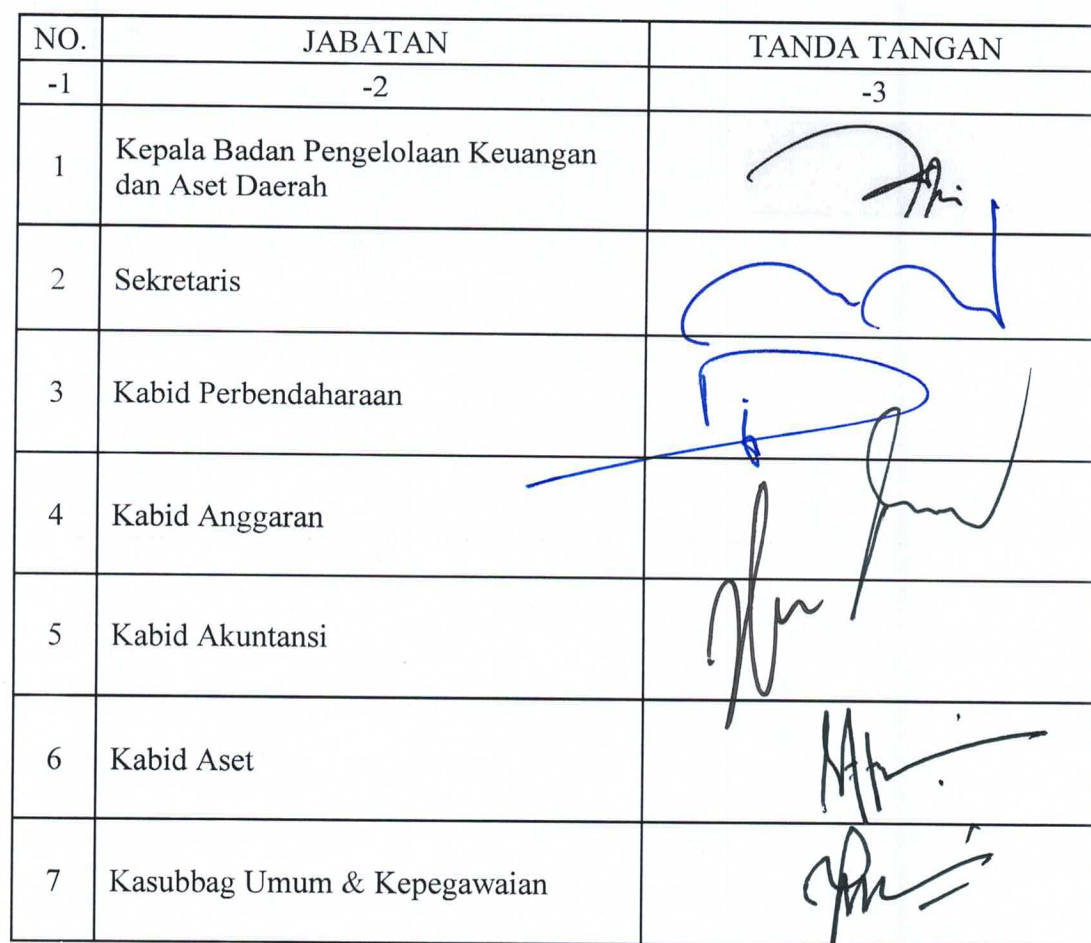 NO. JABATAN TANDA TANGAN
-1 -2 -3
1 Kepala Badan Pengelolaan Keuangan
dan Aset Daerah
2 Sekretaris
3 Kabid Perbendaharaan
4 Kabid Anggaran
5 Kabid Akuntansi
6 Kabid Aset
7 Kasubbag Umum & Kepegawaian